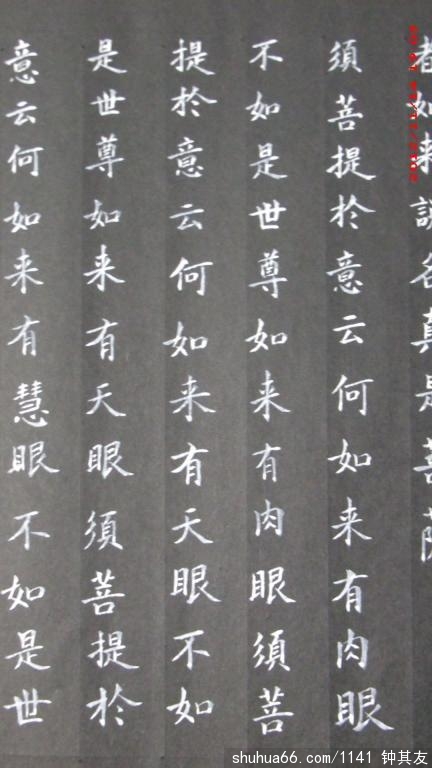 者如来說名真是菩薩
須菩提於意云何如来有肉眼
不如是世尊如来有肉眼須菩
提於意云何如来有天眼不如
是世尊如来有天眼須菩提於
意云何如来有慧眼不如是世
shuhua66.com/1141 钟其友